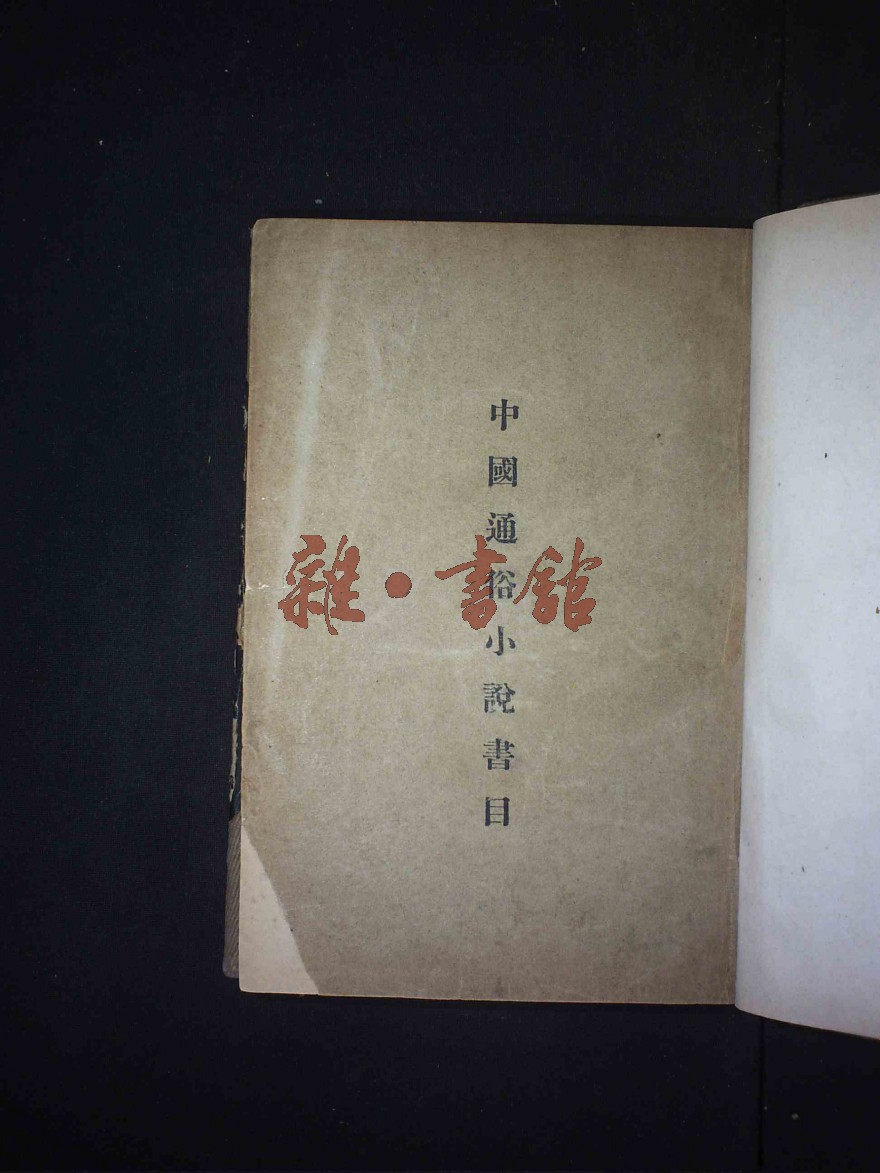 中國通俗小說書目
雜·書館